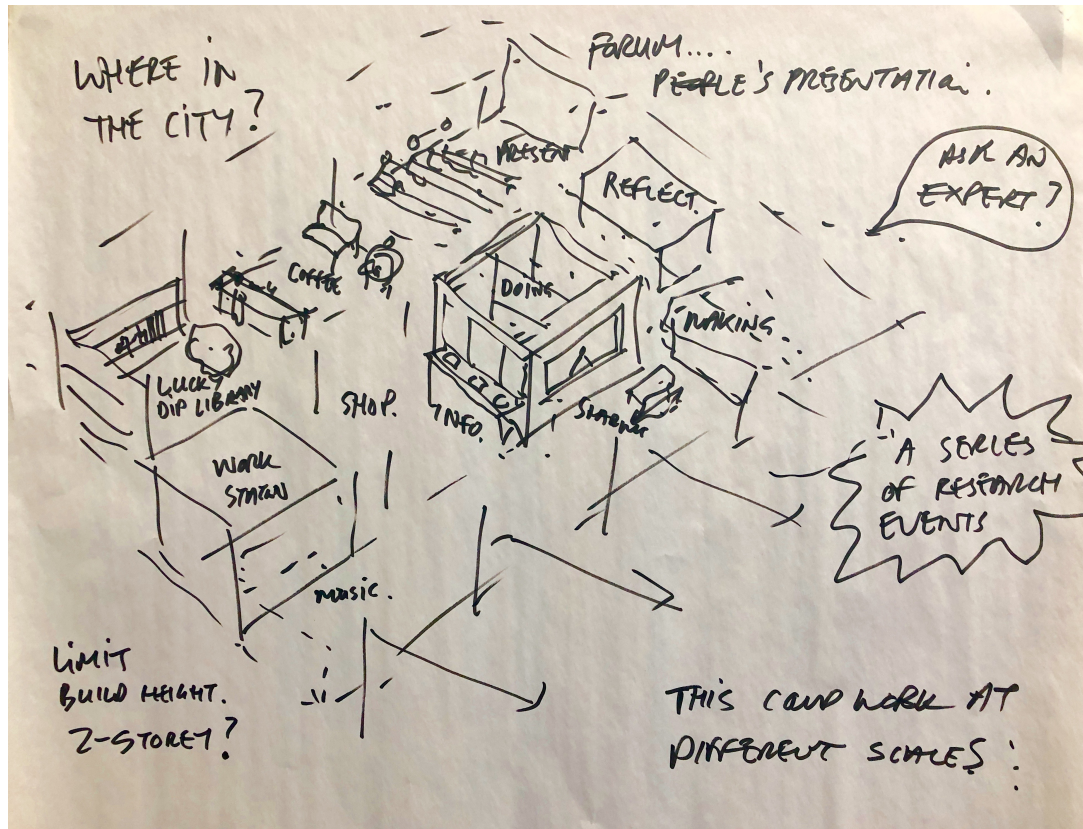 WHERE IN
THE CITY?
FORUM....
PEOPLE'S PRESENTATION.
ASK AN
EXPERT?
PRESENT
REFLECT.
COFFEE
DOING
MAKING
LUCKY
DIP LIBRARY
SHOP.
INFO.
SHARING
WORK
STATION
MUSIC.
'A SERIES
OF RESEARCH
EVENTS
LIMIT
BUILD HEIGHT.
2-STOREY?
THIS COULD WORK AT
DIFFERENT SCALES: